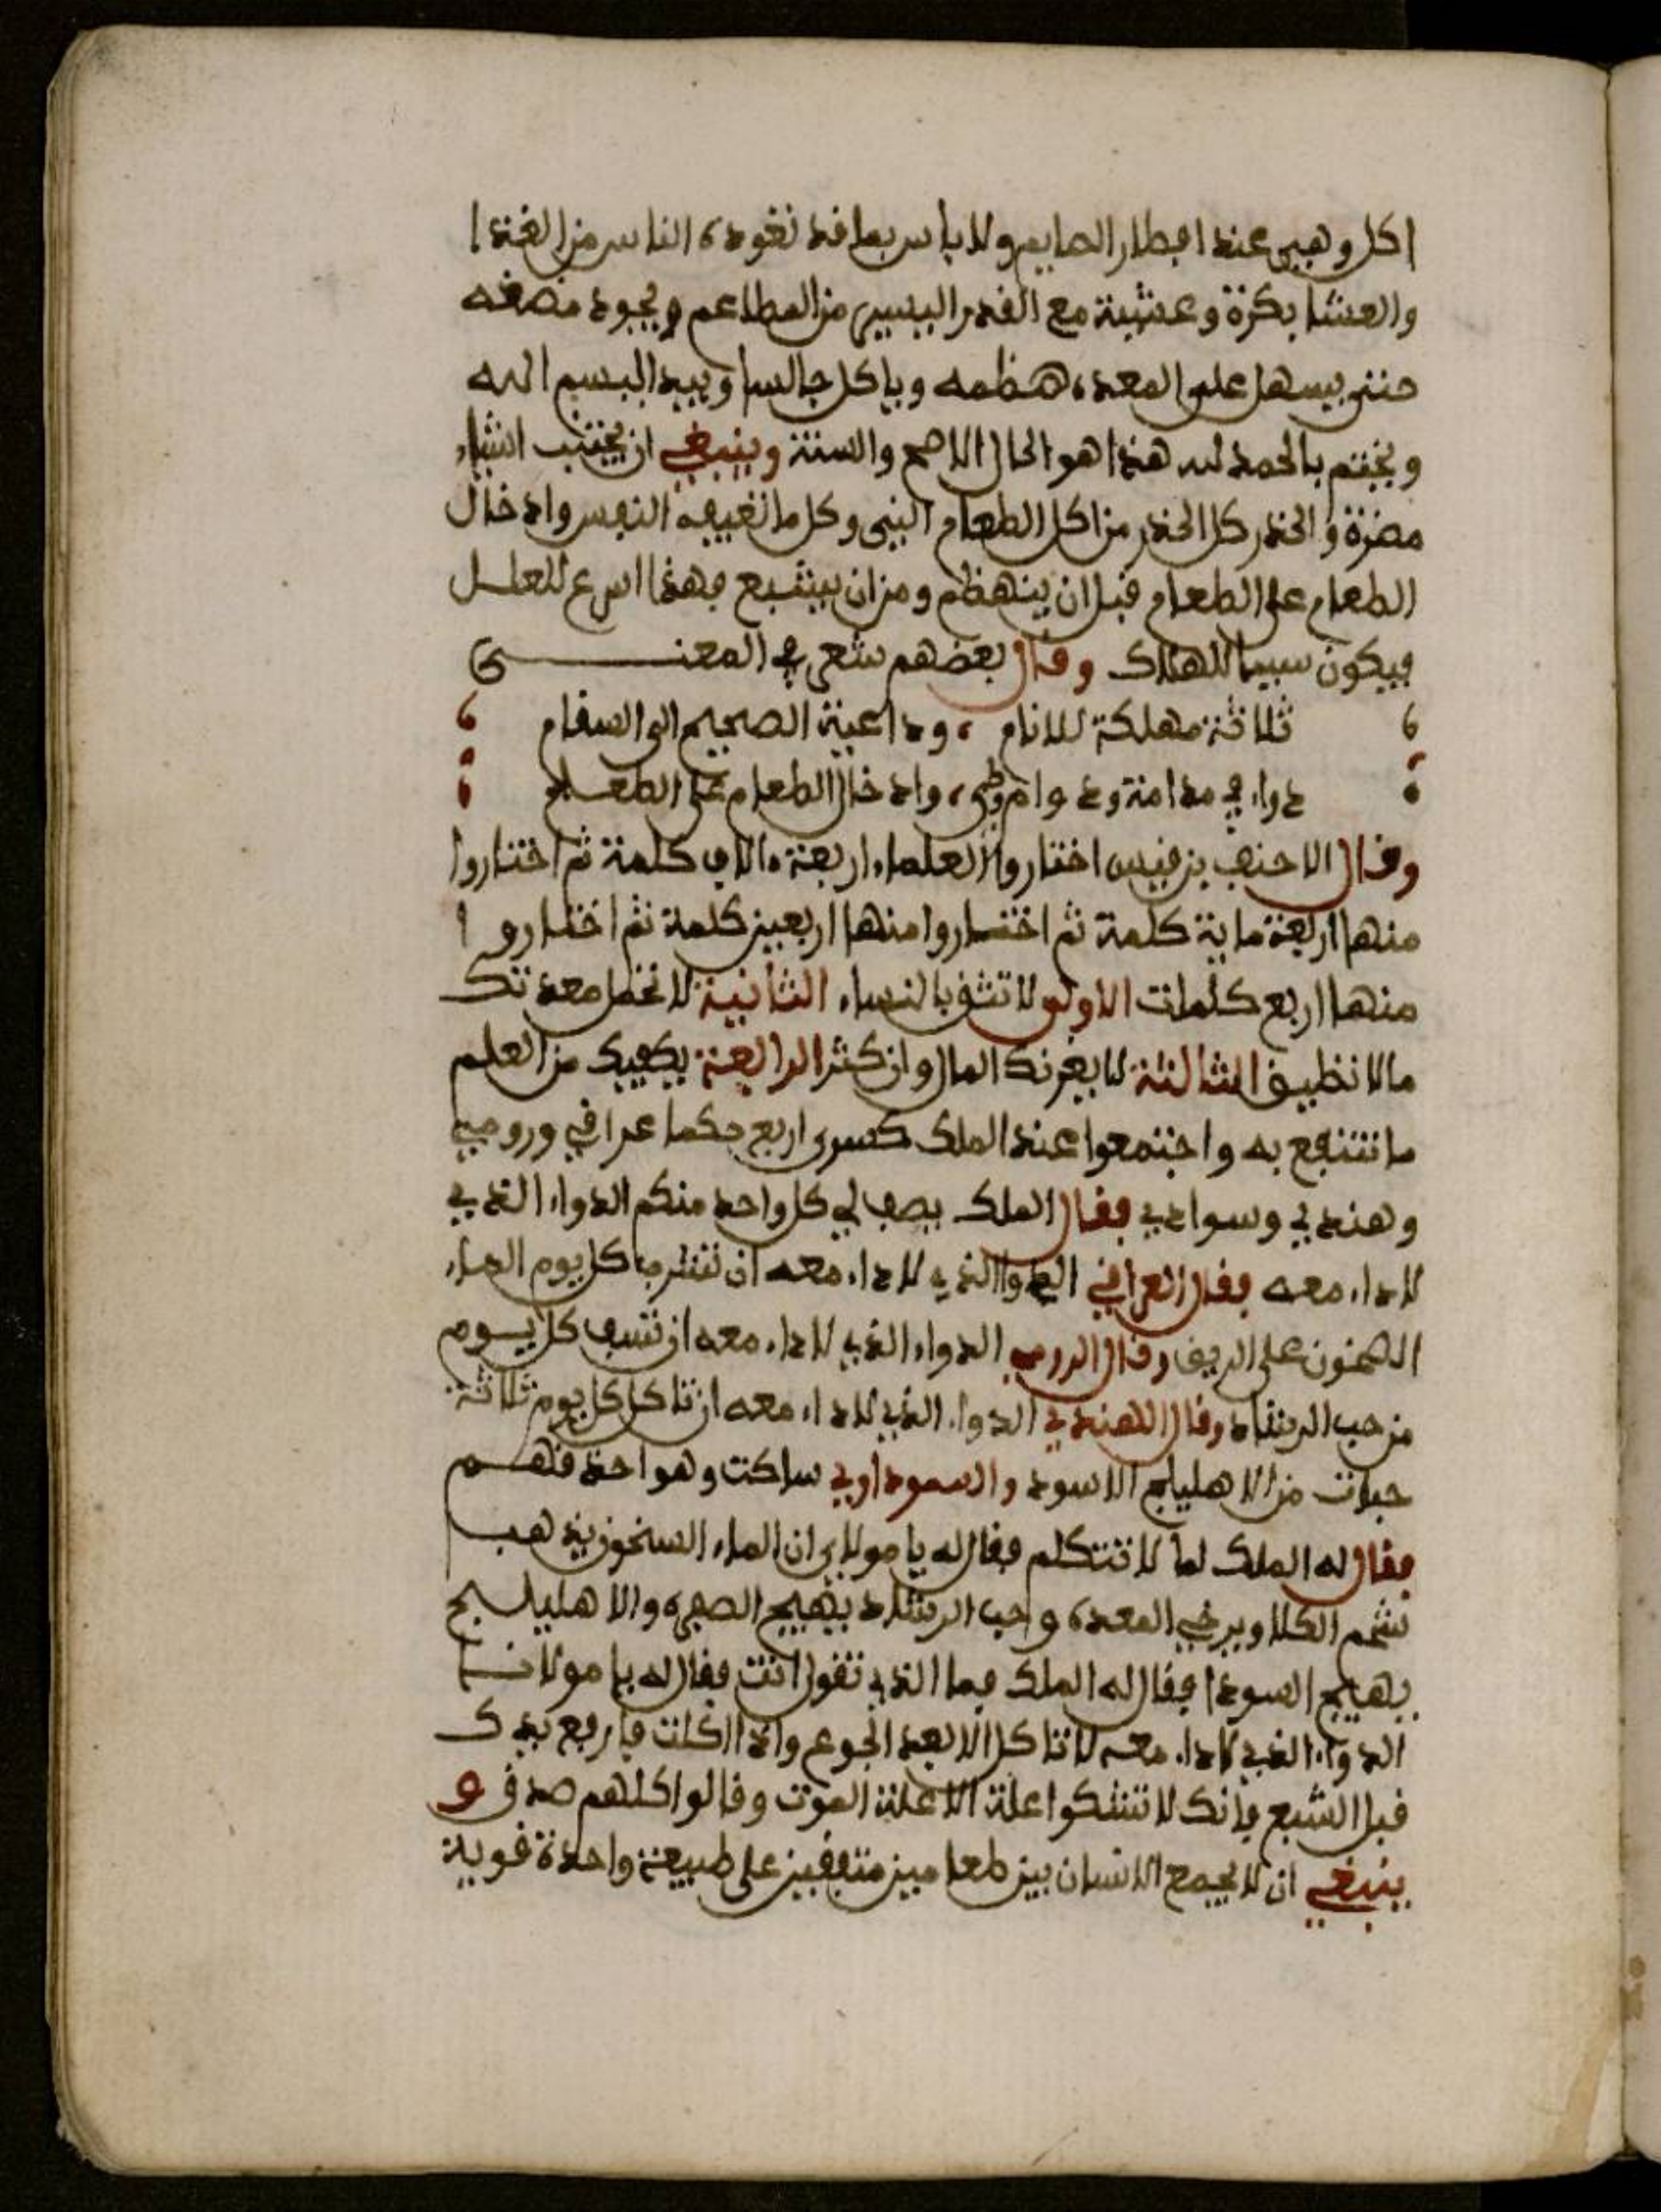 اكل وهي عند افطار الصايم ولا باس بما قد تعوده الناس من الغدا
والعشا بكرة وعشية مع القدر اليسير من المطاعم ويجود مضغه
حتى يسهل على المعدة هضمه وياكل جالسا ويبدا ببسم الله
ويختم بالحمد لله هذا هو الحال الاصح والسنة وينبغي ان يجتنب اشياء
مضرة والحذر كل الحذر من اكل الطعام الني وكل ما تعيفه النفس وادخال
الطعام على الطعام قبل ان ينهظم ومن ان يشبع فهذا اسرع للعلل
فيكون سببا للهلاك وقال بعضهم شعر في المعنى
ثلاثة مهلكة للانام ، وداعية الصحيح الى السقام
دواء في مدامة ودوام وطي ، وادخال الطعام على الطعام
وقال الاحنف بن قيس اختاروا العلماء اربعة ءالاف كلمة ثم اختاروا
منها اربعة ماية كلمة ثم اختاروا منها اربعين كلمة ثم اختاروا
منها اربع كلمات الاولى لا تثق بالنساء الثانية لا تحمل معدتك
ما لا تطيق الثالثة لا يغرنك المال وان كثر الرابعة يكفيك من العلم
ما تنتفع به واجتمعوا عند الملك كسرى اربع حكما عراقي ورومي
وهندي وسوادي فقال الملك يصف لي كل واحد منكم الدواء الذي
لا داء معه فقال العراقي الدوا الذي لا داء معه ان تشرب كل يوم الماء
السخون على الريق وقال الرومي الدواء الذي لا داء معه ان تسف كل يوم
من حب الرشاد وقال الهندي الدواء الذي لا داء معه ان تاكل كل يوم ثلاثة
حبات من الاهليلج الاسود والسوداوي ساكت وهو احذقهم
فقال له الملك لما لا تتكلم فقال له يا مولاي ان الماء السخون يذهب
شحم الكلا ويرخي المعدة وحب الرشاد يهيج الصفرة والاهليلج
يهيج السودا فقال له الملك فما الذي تقول انت فقال له يا مولانا
الدواء الذي لا داء معه لا تاكل الا بعد الجوع واذا اكلت فارفع يدك
قبل الشبع فانك لا تشكوا علة الا علة الموت وقالوا كلهم صدق و
ينبغي ان لا يجمع الانسان بين طعامين متفقين على طبيعة واحدة قوية